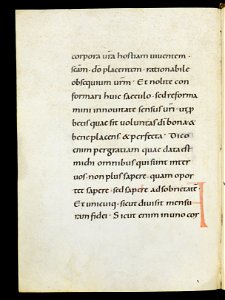 corpora vr̃a hostiam viventem ·
sc̃am · dõ placentem · rationabile
obsequium vr̃m · Et nolite con
formari huic saeculo · sed reforma
mini innovitate sensus vr̃i · ut p̱
betis quae sit voluntas dī bona &
beneplacens & perfecta · Dico
enim per gratiam quae data est
michi omnibus qui sunt inter
vos · non plus sapere · quam opor
tet sapere · sed sapere ad sobrietatē ·
Et unicuiq; sicut divisit mensu
ram fidei · Sicut enim in uno cor